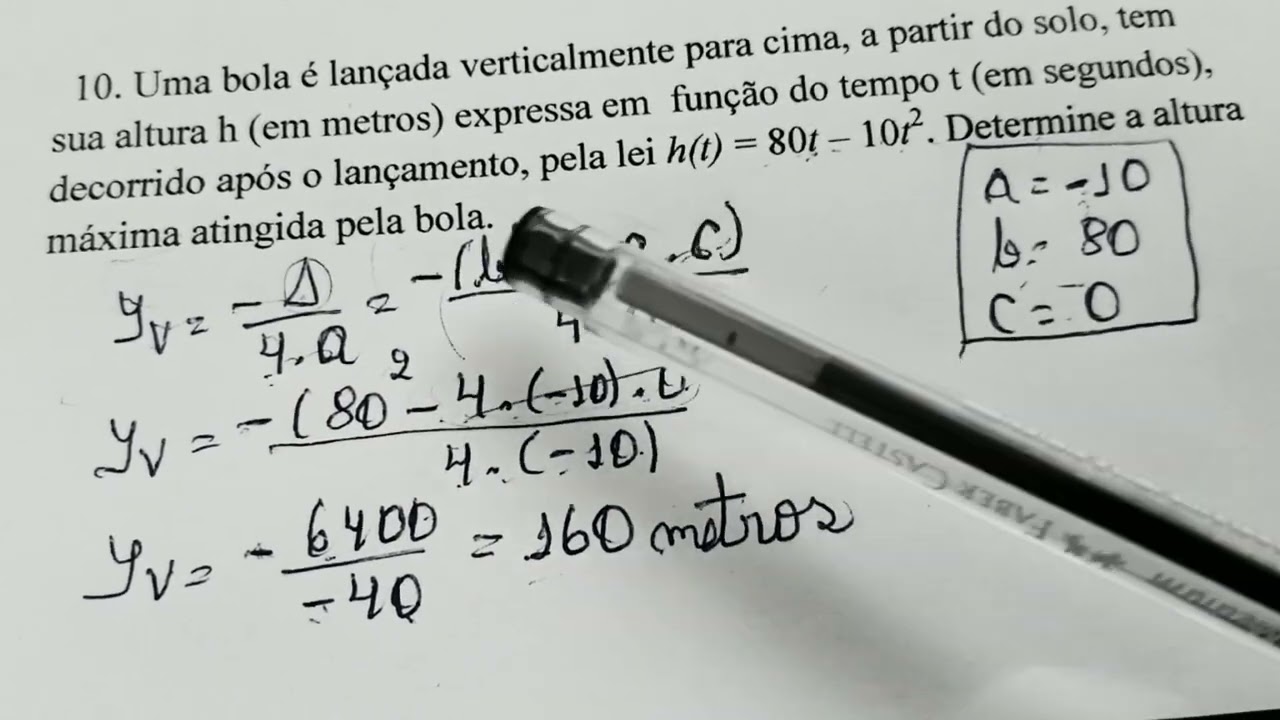 10. Uma bola é lançada verticalmente para cima, a partir do solo, tem
sua altura h (em metros) expressa em função do tempo t (em segundos),
decorrido após o lançamento, pela lei h(t) = 80t – 10t². Determine a altura
máxima atingida pela bola.
a = -10
b = 80
c = 0
yv = -Δ/4.a = -(b . c)/4
yv = -(80² - 4.(-10).0/4.(-10)
yv = -6400/-40 = 160 metros
FABER CASTELL